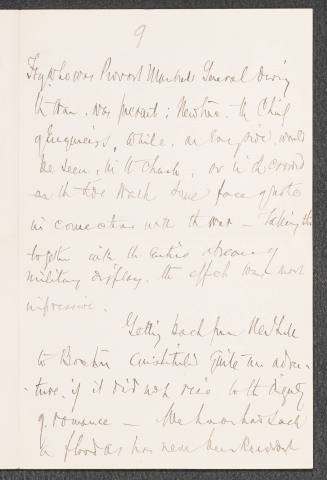 9
Fry, who was Provost Marshal General during
the war, was present; Newton, the Chief
of Engineers, while, on every side, would
be seen, in the Church, or in the crowd
on the side walk some face of note
in connection with the war — Taking this
together with the entire absence of
military display, the effect was most
impressive.
Getting back from New York
to Boston constituted quite an adven-
-ture, if it did not rise to the dignity
of romance — We have had such
a flood as has never been known